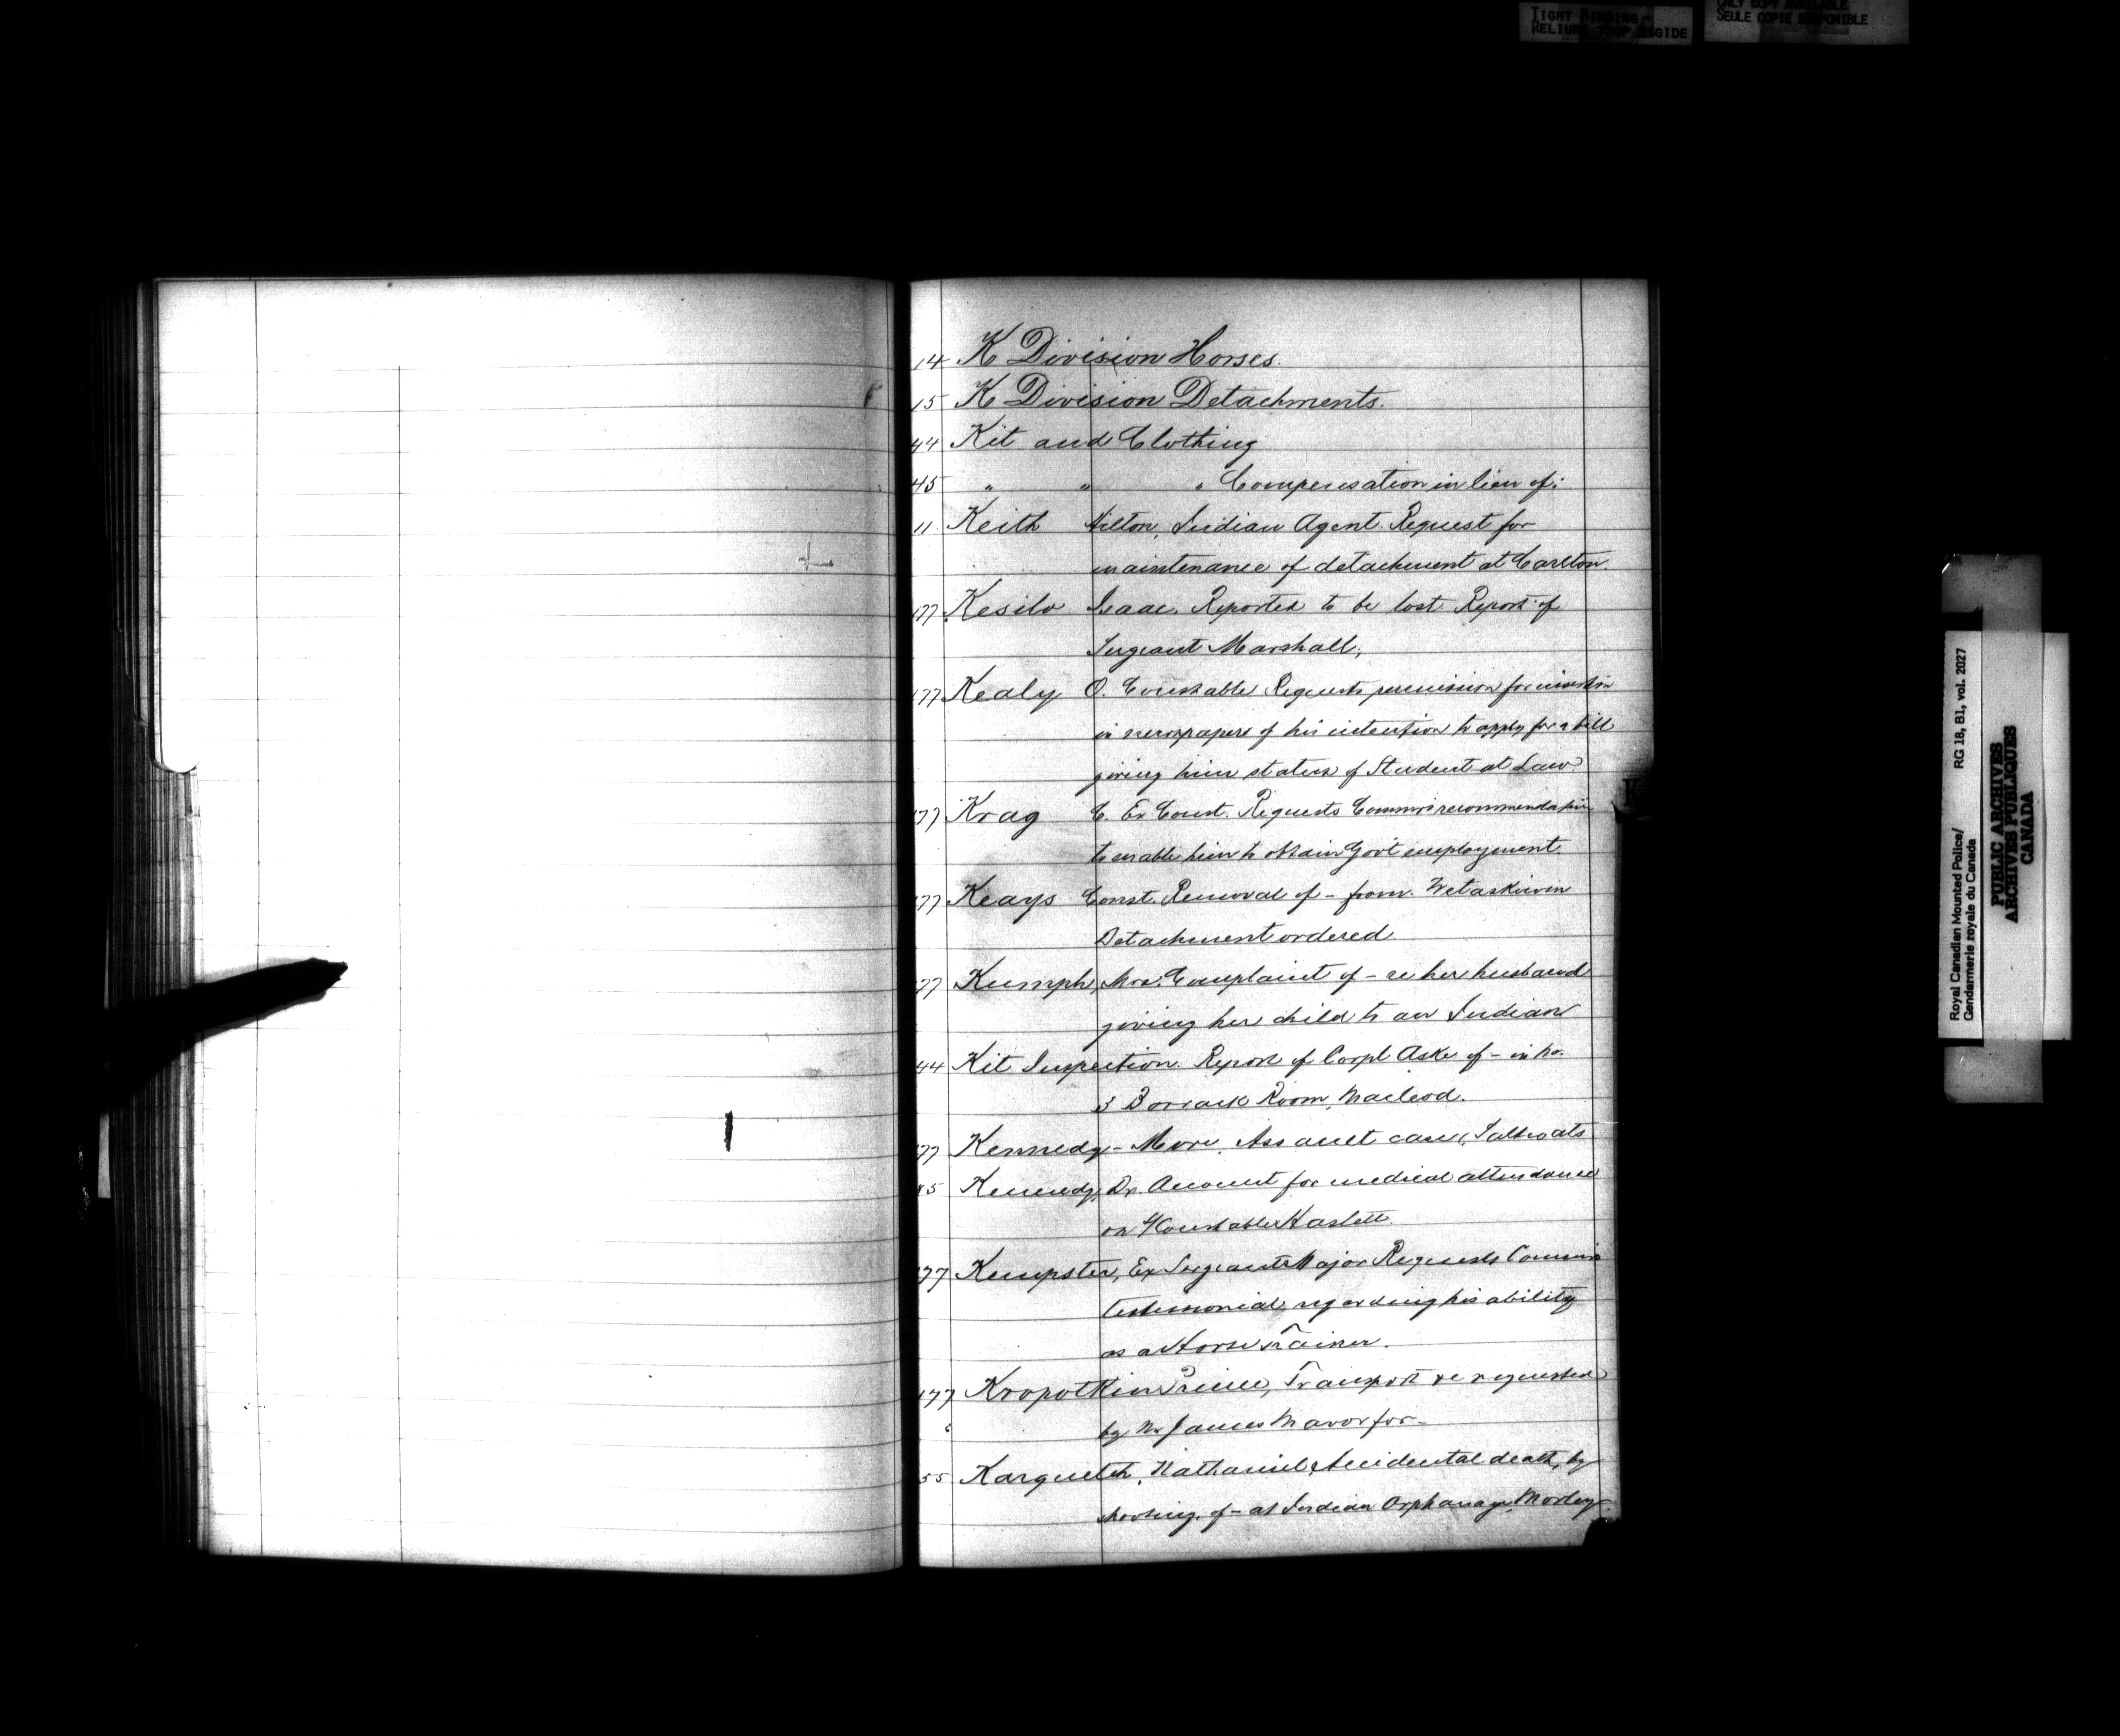 TIGHT BINDING
RELIURE TROP RIGIDE
ONLY COPY AVAILABLE
SEULE COPIE DISPONIBLE
14 K Division Horses.
15 K Division Detachments.
44 Kit and Clothing
45 " " " Compensation in lieu of:
11 Keith Hilton, Indian Agent. Request for
maintenance of detachment at Carlton.
177 Kesilo Isaac. Reported to be lost. Report of
Sergeant Marshall,
177 Kealy O. Constable Requests permission for insertion
in newspapers of his intention to apply for a bill
giving him status of Student at Law.
177 Krag C. Ex Const. Requests Commrs recommendation
to enable him to obtain Gov't employment.
177 Keays Const. Removal of - from Wetaskiwin
Detachment ordered
177 Kumph, Mrs. Complaint of - re her husband
giving her child to an Indian
44 Kit Inspection. Report of Corpl Aske of - in No.
3 Barrack Room, Macleod.
177 Kennedy - More, Assault case, Saltcoats
45 Kennedy, Dr. Account for medical attendance
on Constable Haslett.
177 Kempster, Ex Sergeant Major Requests Commrs
testimonial, regarding his ability
as a Horse Trainer.
177 Kropotkin Prince, Transport re requested
by Mr James Mavor for -
55 Karquetch, Nathaniel, Accidental death, by
shooting, of - at Indian Orphanage, Morley.
K
Royal Canadian Mounted Police/
Gendarmerie royale du Canada
RG 18, B1, vol. 2027
PUBLIC ARCHIVES
ARCHIVES PUBLIQUES
CANADA